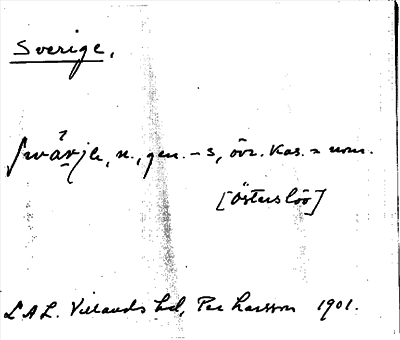 Sverige.
ʃwärje, n., gen. -s, övr. kas. = nom.
[Österslöv]
L A L. Villands hd, Per Larsson 1901.